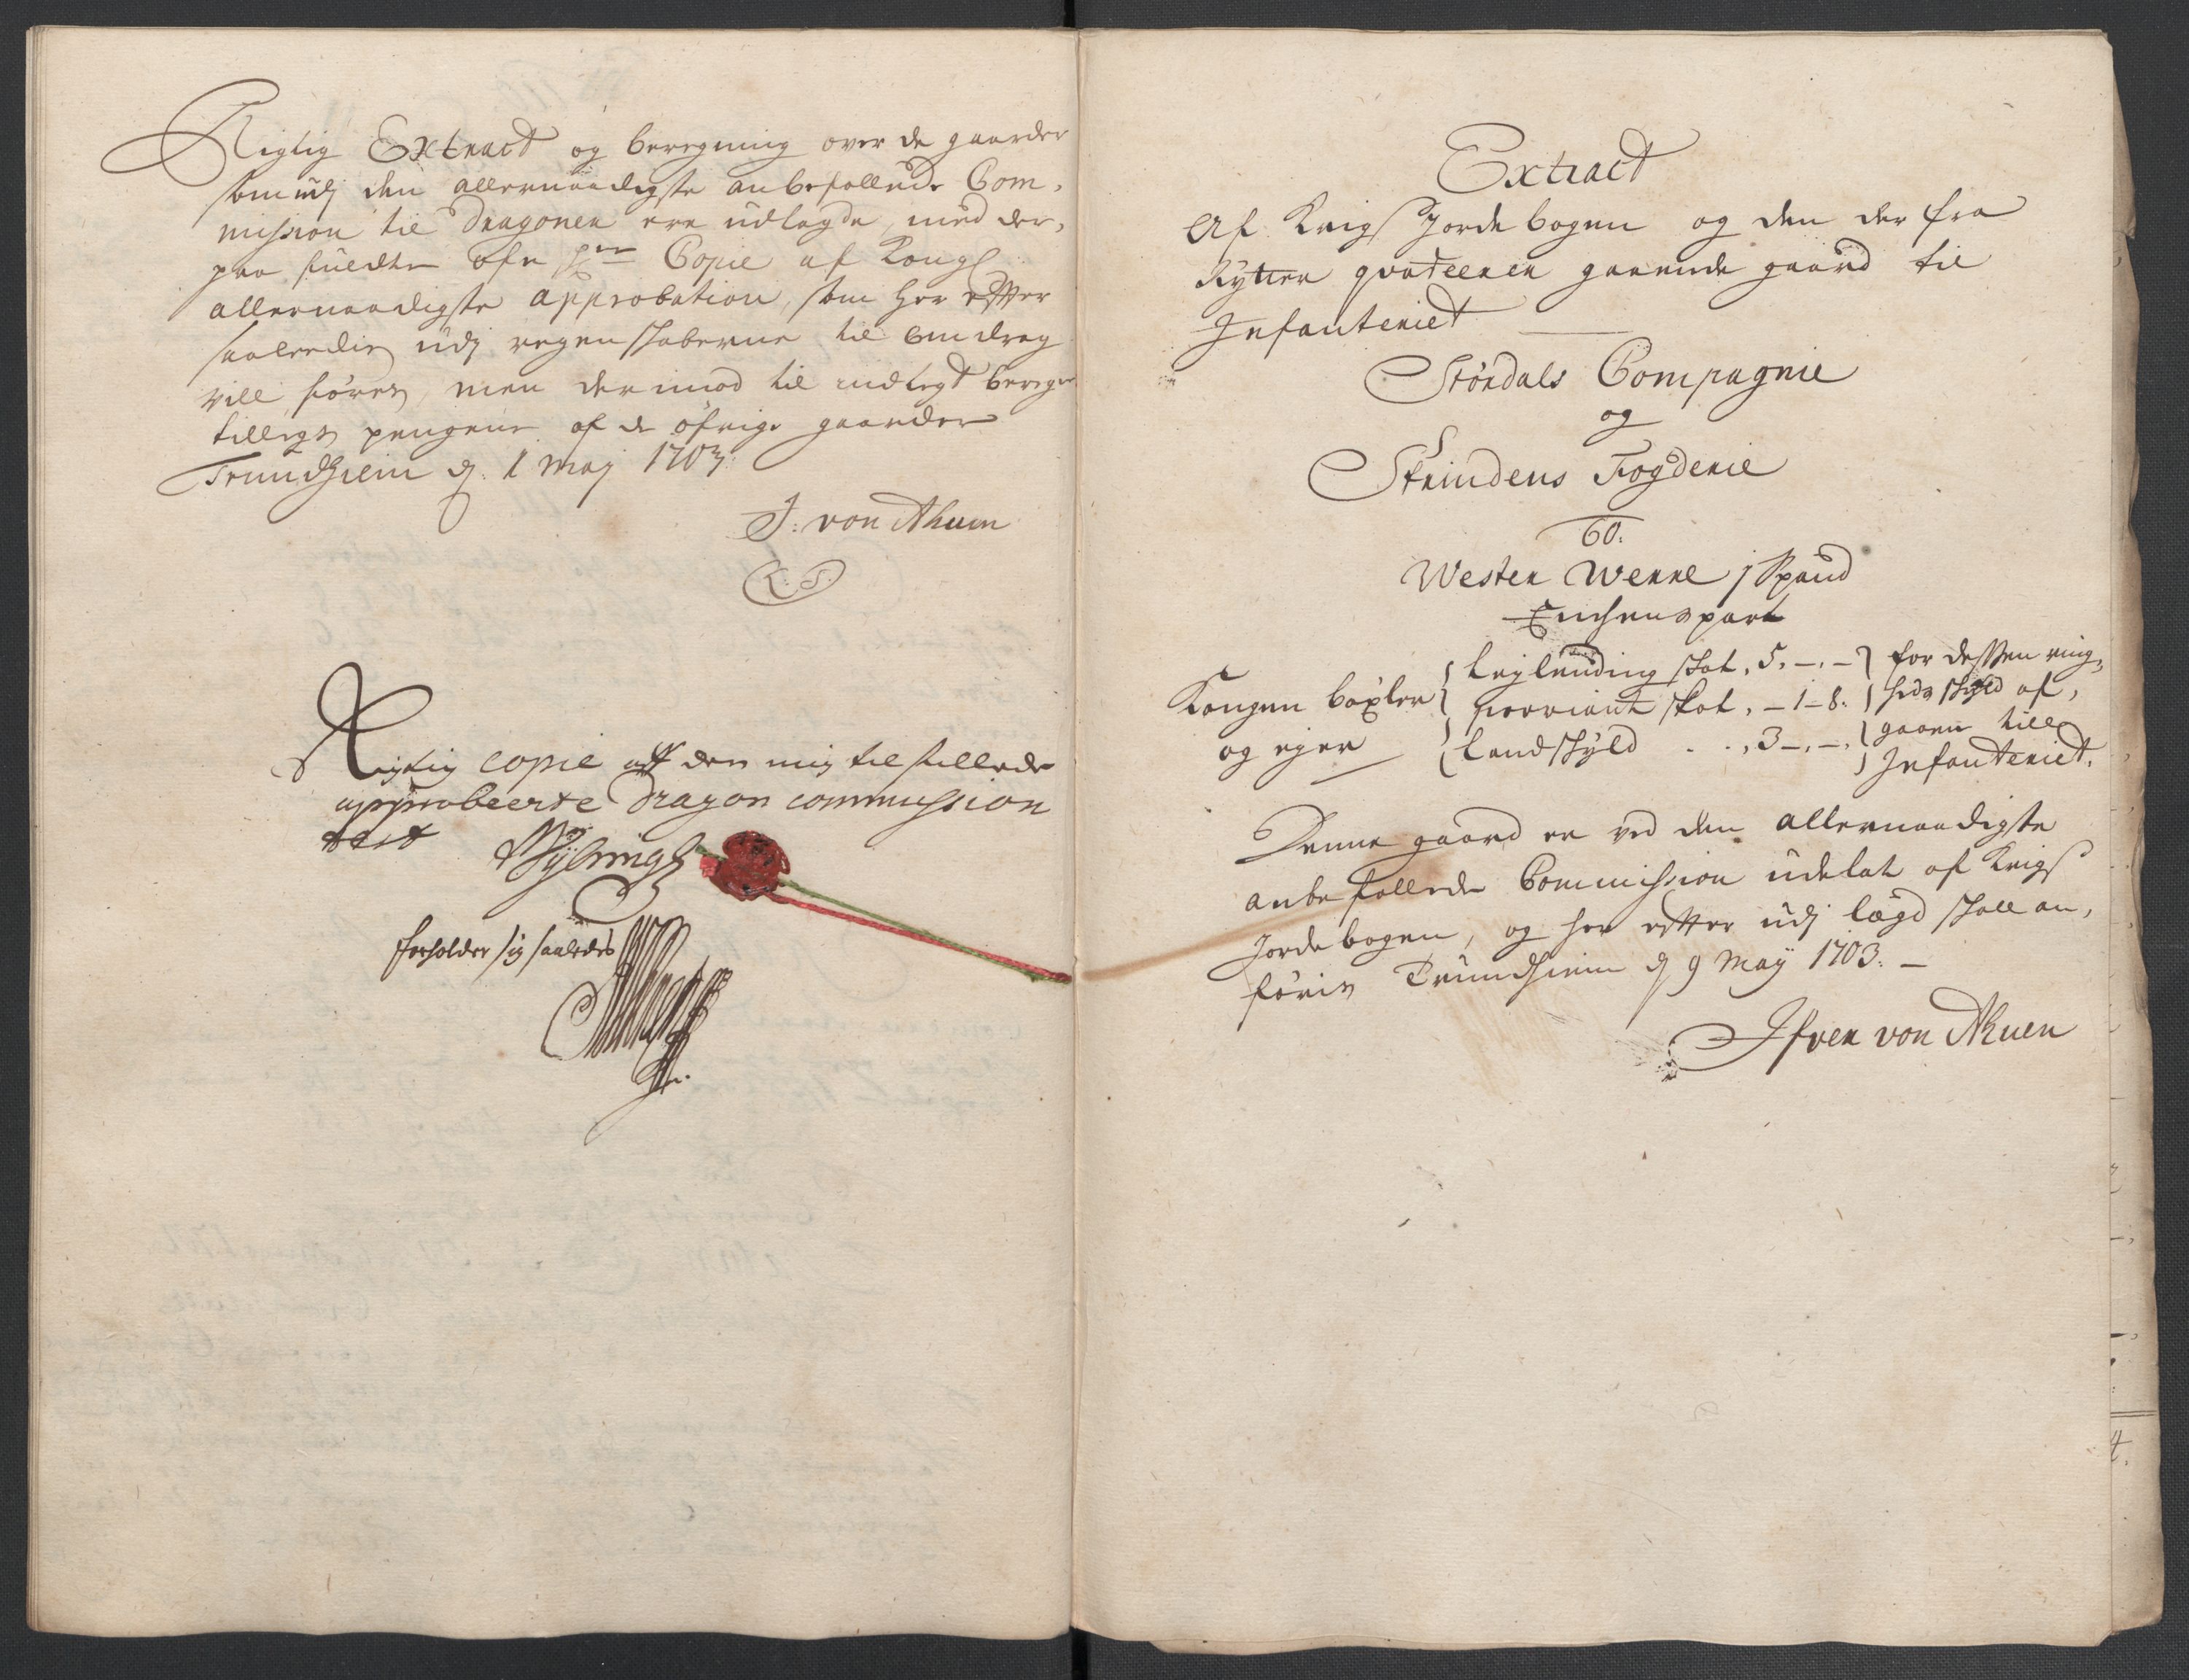 Rigtig Extract og beregning over de gaarder
som udj den allernaadigste anbefallede Com,
mission til Dragoner ere udlagde, med der,
paa fuldte Copie af Kongl
allernaadigste approbation, som her effter
saaleedis udj regenskaberne til omdrag
vill føres, men derimod til indtegt
tillegs pengene af de øfrige gaarder
Trundhiem d. 1 Maj 1703.
I: von Ahuen
L. S.
Rigtig copie aff den mig tilstillede
approbeerte Dragon commission
test
forholder sig saaledes
Extract
Af Krigs Jordebogen og den der fra
Rytter qvarteerer gaaende gaard til
Infanteriet
Størdals Compagnie
og
Strindens Fogderie
60.
Wester Werre j Spand
Kongen bøxler
og ejer
Leylending skat, 5, -, -
proviant skat, - 1 - 8.
Landskyld . . , 3 -, -,
for dessen ring,
heds skyld af,
gaaen till
Infanteriet.
Denne gaard er ved den allernaadigste
anbefallede Commission udelat af Krigs
Jordebogen, og her effter udj lægd skall an,
føris Trundhiem d 9 Maÿ 1703. -
Ifver von Ahuen